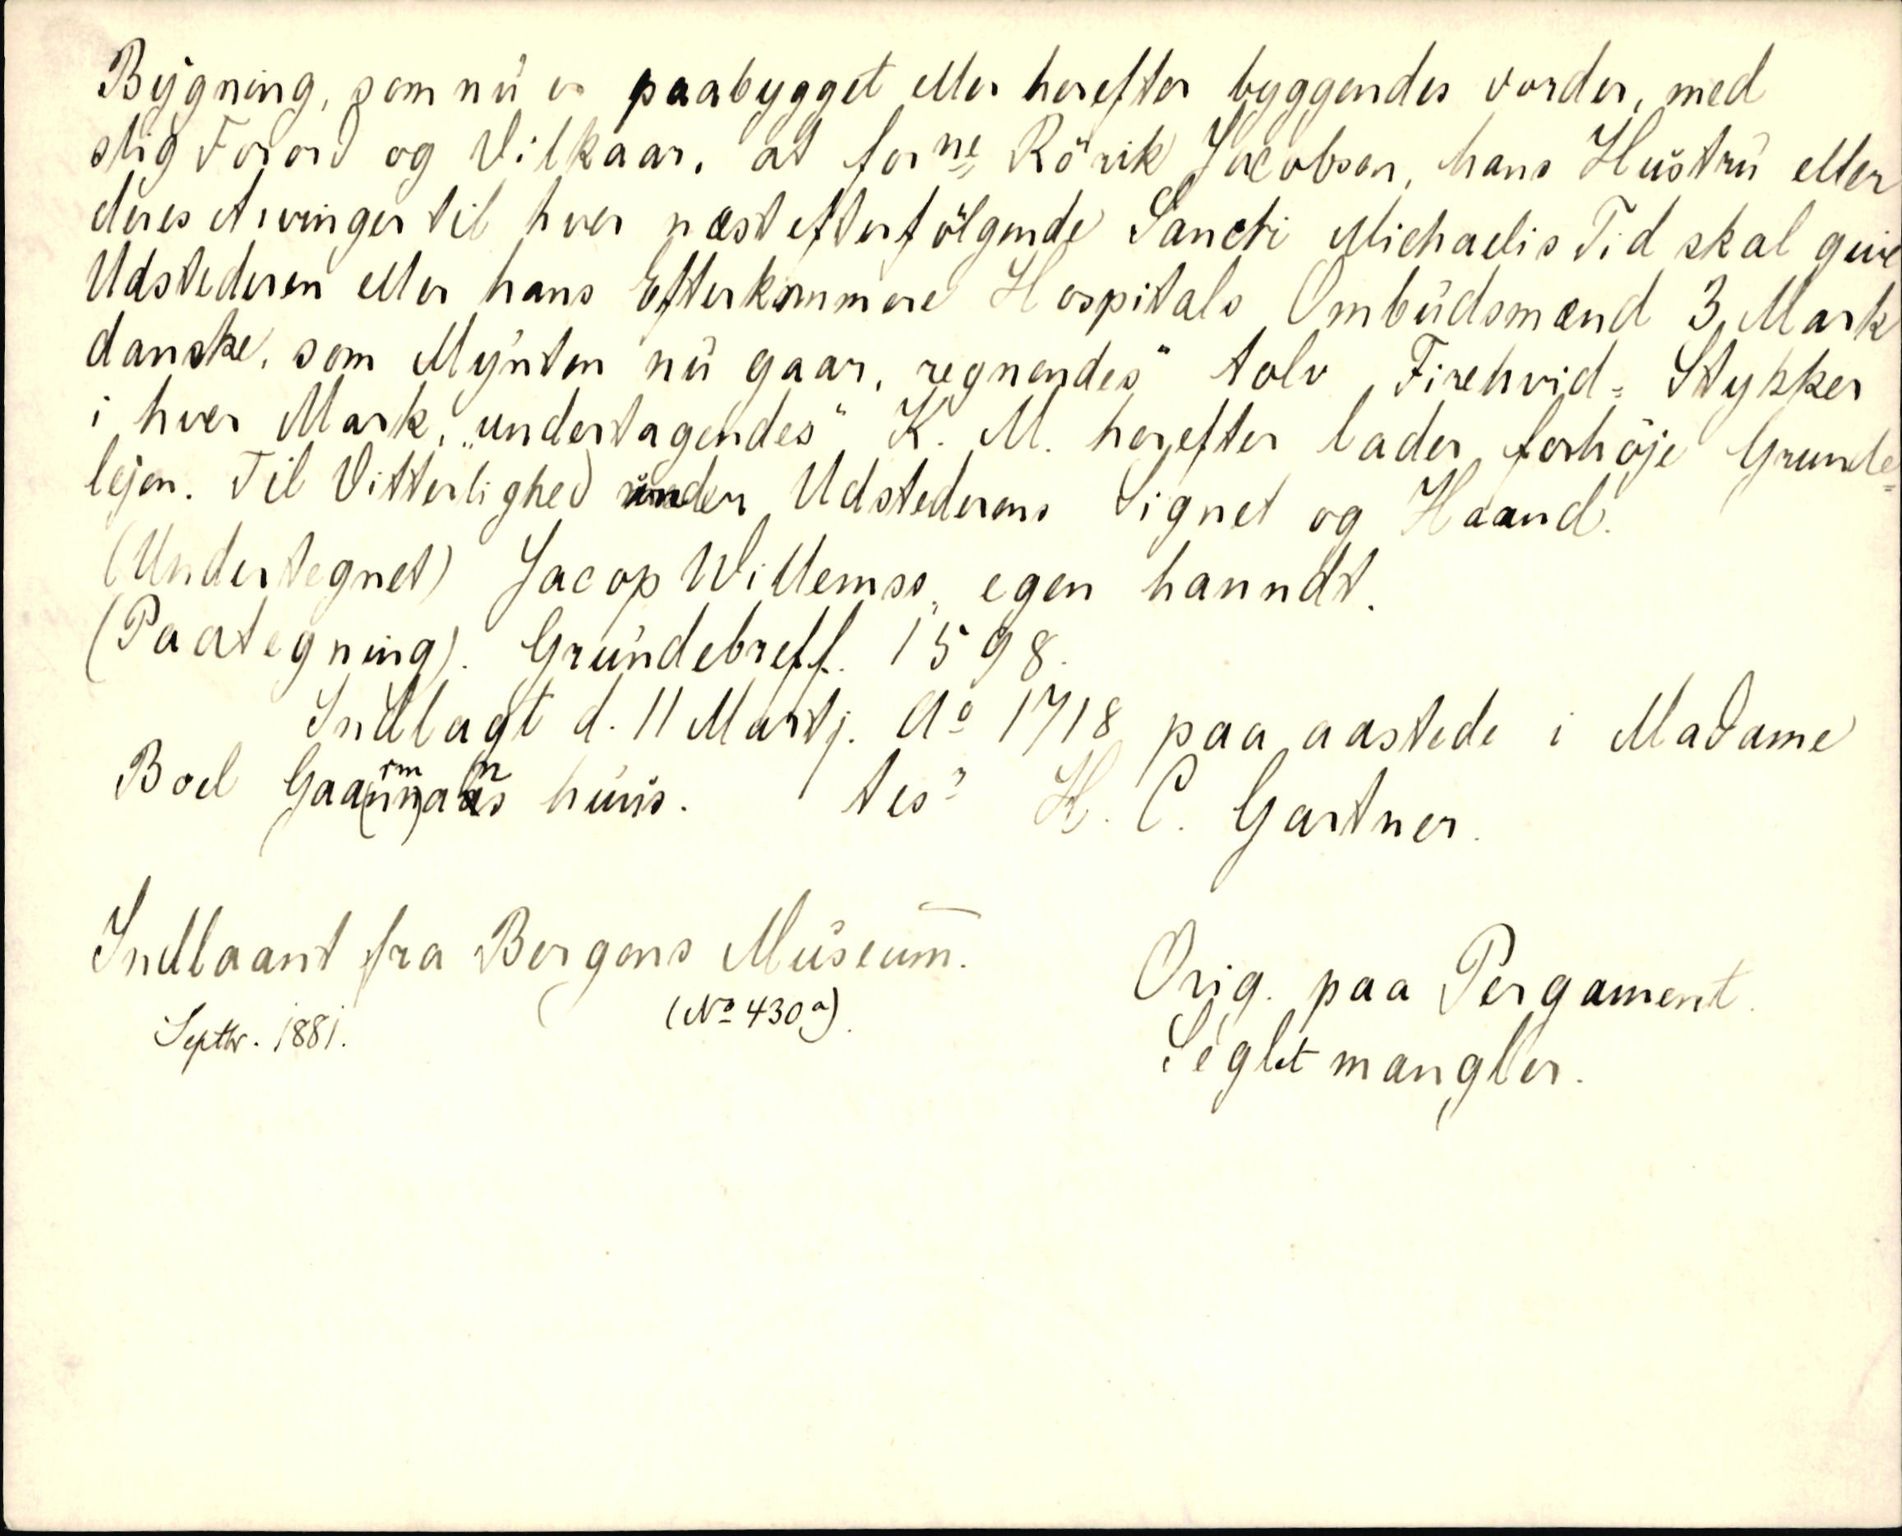 Bygning, som nu er paabygget eller herefter byggendes vorder, med
slig Forord og Vilkaar, at forne Rörik Jacobsen, hans Hustru eller
deres Arvinger til hver næst efterfölgende Sancti Michaelis Tid skal give
Udstederen eller hans Efterkommere Hospitals Ombudsmænd 3 Mark
danske, som Mynten nu gaar, regnendes" tolv Firehvid-Stykker
i hver Mark, "undertagendes" K. M. herefter lader forhöje Grunde-
lejen. Til Vitterlighed under Udstederens Signet og Haand.
(Undertegnet) Jacop Willemss, egen hanndt.
(Paategning). Grundebreff. 1598.
Indlagt d. 11 Martj. Ao 1718 paa aastede i Madame
Boel Gaarmans huus. tes H. C. Gartner.
Indlaant fra Bergens Museum.
Septbr. 1881. (No 430a).
Orig. paa Pergament.
Seglet mangler.